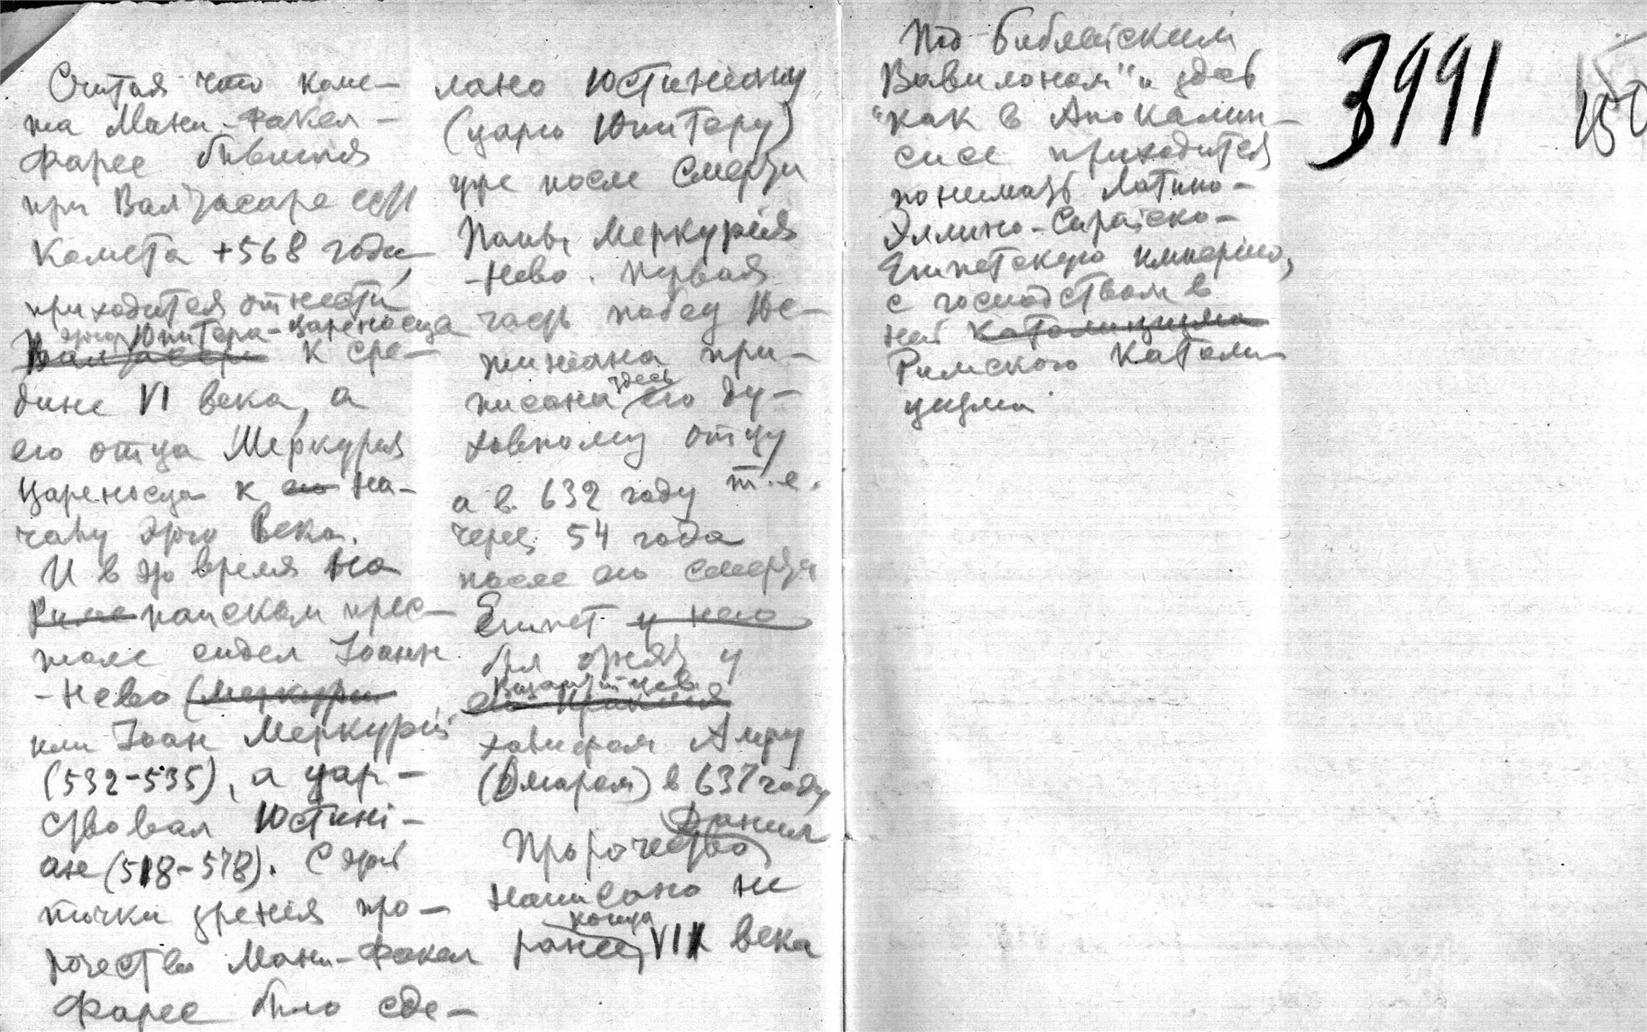 Считая что коме-
та Мани-Факел-
Фарес бывшая
при Валтасаре есть
Комета +568 года,
приходится отнести
этого Юпитера-Цареносца
Валтасара к сре-
дине VI века, а
его отца Меркурия
Цареносца к его на-
чалу этого века.
И в это время на
Риме папском прес-
толе сидел Іоанн
-Нево (Меркури
или Іоан Меркурій
(532-535), а цар-
ствовал Юстині-
ан (518-578). С этой
точки зренія про-
рочество Мани-Факел
Фарес было сде-
лано Юстиніану
(царю Юпитеру)
уже после смерти
Папы Меркурія
-Нево. Первая
часть побед Юс-
тиніана при-
писана здесь его ду-
ховному отцу
а в 632 году т.е.
через 54 года
после его смерти
Египет у него
был отнят у
Византійцев
его Ираклия
халифом Амру
(Омаром) в 637 году
Пророчество Данил
написано не
ранее конца VII века
Под Библейским
"Вавилоном" и здесь
как в Апокалип-
сисе приходится
понимать Латино-
Эллино-Сирійско-
Египетскую имперію,
с господством в
ней Католицизма
Римского Католи-
цизма
3991
150